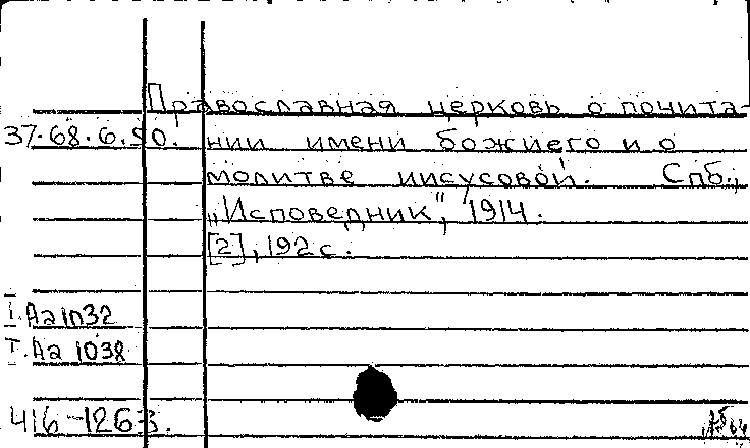 Православная церковь о почита-
37.68.6.50. нии имени божиего и о
молитве иисусовой. Спб.,
„Исповедник", 1914.
[2], 192 с.
I. Аа 1032
I. Аа 1038
416-1263.